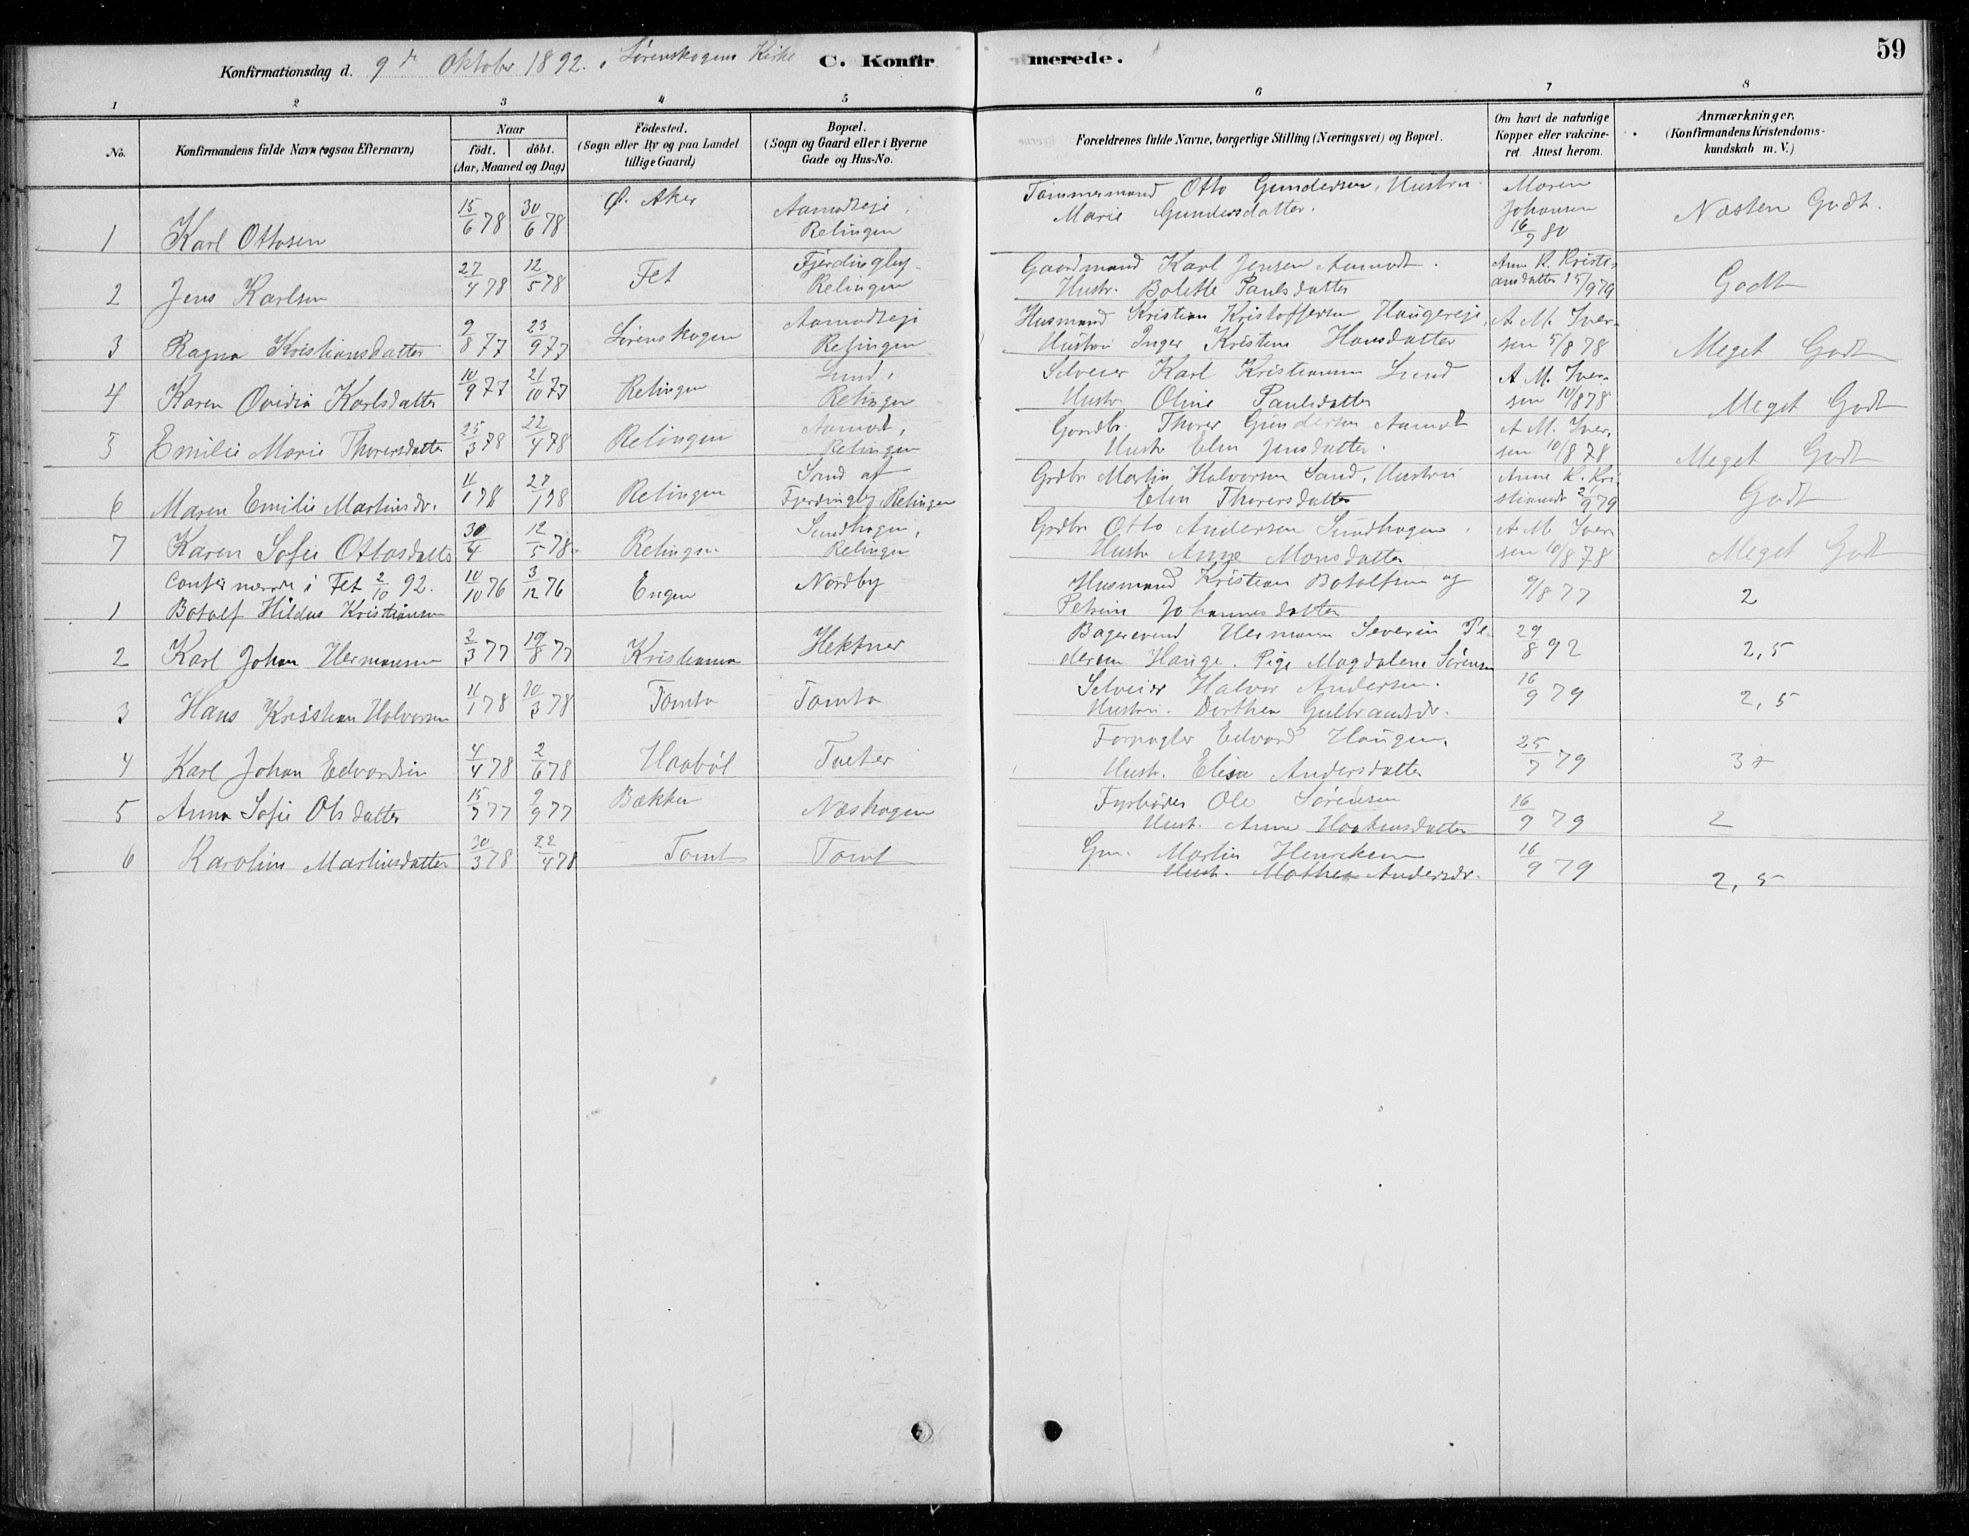 59
Konfirmationsdag d. 9de Oktober 1892. i Lørenskogens Kirke C. Konfirmerede.
1 2 3 4 5 6 7 8
No. Konfirmandens fulde Navn (ogsaa Efternavn) Naar födt. döbt. (Aar, Maaned og Dag) Födested. (Sogn eller By og paa Landet tillige Gaard) Bopæl. (Sogn og Gaard eller i Byerne Gade og Hus-No. Forældrenes fulde Navne, borgerlige Stilling (Næringsvei) og Bopæl. Om havt de naturlige Kopper eller vakcineret. Attest herom. Anmærkninger. (Konfirmandens Kristendomskundskab m. V.)
1 Karl Ottosen 15/6 78 30/6 78 Ø. Aker Aamodteje, Relingen Tömmermand Otto Gundersen, Hustru Marie Gundersdatter. Maren Johansen 16/9 80 Næsten Godt.
2 Jens Karlsen 27/4 78 12/5 78 Fet Fjerdingby, Relingen Gaardmand Karl Jensen Aamodt. Hustr. Bolette Paulsdatter Anne K. Kristiansdatter 15/9 79 Godt
3 Ragna Kristiansdatter 9/8 77 23/9 77 Lørenskogen Aamodteje Relingen Husmand Kristian Kristoffersen Haugereje, Hustru Inger Kristine Hansdatter A. M. Iversen 5/8 78 Meget Godt
4 Karen Ovidia Karlsdatter 10/9 77 21/10 77 Relingen Lund, Relingen Selveier Karl Kristiansen Lund Hustr. Oline Paulsdatter A. M. Iversen 10/8 78 Meget Godt
5 Emilie Marie Thorersdatter 25/3 78 22/4 78 Relingen Aamodt, Relingen Gaardbr. Thorer Gundersen Aamodt Hustr. Elen Jensdatter. A. M. Iversen 10/8 78 Meget Godt
6 Maren Emilie Martinsdr. 4/1 78 27/1 78 Relingen Sund af Fjerdingby, Relingen Grdbr Martin Halvorsen Sund, Hustru Elen Thorersdatter Anne K. Kristiansdr 2/9 79 Godt
7 Karen Sofie Ottosdatter 30/4 12/5 78. Relingen Sundhagen, Relingen Grdbr Otto Andersen Sundhagen. Hustr Anne Monsdatter A. M. Iversen 10/8 78 Meget Godt
Confirmerede i Fet 2/10 92.
1 Botolf Hildus Kristiansen 10/10 76 3/12 76 Engen Nordby Husmand Kristian Botolfsen og Petrine Johannesdatter 9/8 77 2
2 Karl Johan Hermansen 2/3 77 19/8 77 Kristiania Hektner Bagersvend Herman Severin Pedersen Hauge. Pige Magdalene Sörensen 29/8 92 2,5
3 Hans Kristian Halvorsen 11/1 78 10/3 78 Tomta Tomta Selveier Halvor Andersen. Hustru. Dorthea Gulbrandsdr. 16/9 79 2,5
4 Karl Johan Edvardsen 4/4 78 2/6 78 Haaböl Tueter Forpagter Edvard Haugen, Hustr. Elisa Andersdatter 25/7 79 3+
5 Anna Sofie Olsdatter 15/7 77 9/9 77 Bækken Næshagen Fyrböder Ole Sörensen Hust. Anne Haakensdatter 16/9 79 2
6 Karoline Martinsdatter 30/3 78 22/4 78 Tomt Tomt Gm. Martin Henriksen Hust. Mathea Andersdr. 16/9 79 2,5